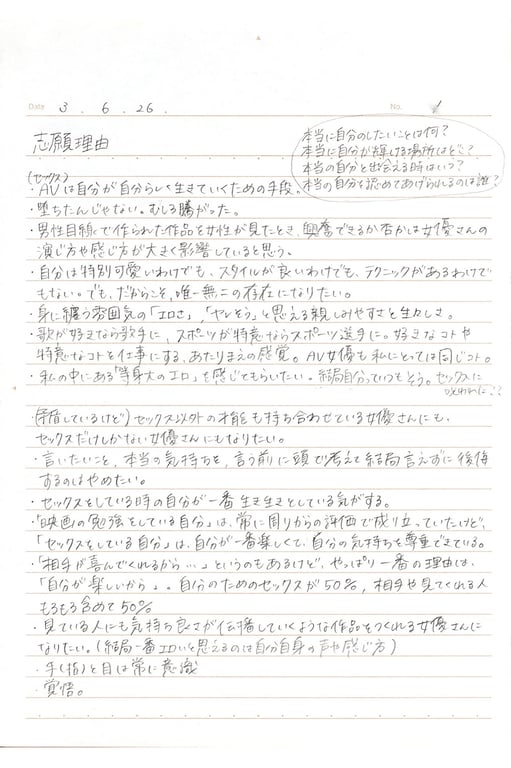 Date 3 . 6 . 26 .
No. 1
志願理由
本当に自分のしたいことは何？
本当に自分が輝ける場所はどこ？
本当の自分と出会える時はいつ？
本当の自分を認めてあげられるのは誰？
(セックス)
・AVは自分が自分らしく生きていくための手段。
・堕ちたんじゃない。むしろ騰がった。
・男性目線で作られた作品を女性が見たとき、興奮できるか否かは女優さんの
演じ方や感じ方が大きく影響していると思う。
・自分は特別可愛いわけでも、スタイルが良いわけでも、テクニックがあるわけで
もない。でも、だからこそ、唯一無二の存在になりたい。
・身に纏う雰囲気の「エロさ」、「ヤレそう」と思える親しみやすさと生々しさ。
・歌が好きなら歌手に、スポーツが特意ならスポーツ選手に。好きなコトや
特意なコトを仕事にする、あたりまえの感覚。AV女優も私にとっては同じコト。
・私の中にある「等身大のエロ」を感じてもらいたい。結局自分っていつもそう。セックスに
呪われた！？
(矛盾しているけど)セックス以外の才能も持ち合わせている女優さんにも、
セックスだけしかない女優さんにもなりたい。
・言いたいこと、本当の気持ちを、言う前に頭で考えて結局言えずに後悔
するのはやめたい。
・セックスをしている時の自分が一番生き生きとしている気がする。
・「映画の勉強をしている自分」は、常に周りからの評価で成り立っていたけど、
「セックスをしている自分」は、自分が一番楽しくて、自分の気持ちを尊重できている。
・「相手が喜んでくれるから…」というのもあるけど、やっぱり一番の理由は、
「自分が楽しいから」。自分のためのセックスが50%、相手や見てくれる人
もろもろ含めて50%
・見ている人にも気持ち良さが伝播していくような作品をつくれる女優さんに
なりたい。(結局一番エロいと思えるのは自分自身の声や感じ方)
・手(指)と目は常に意識
・覚悟。